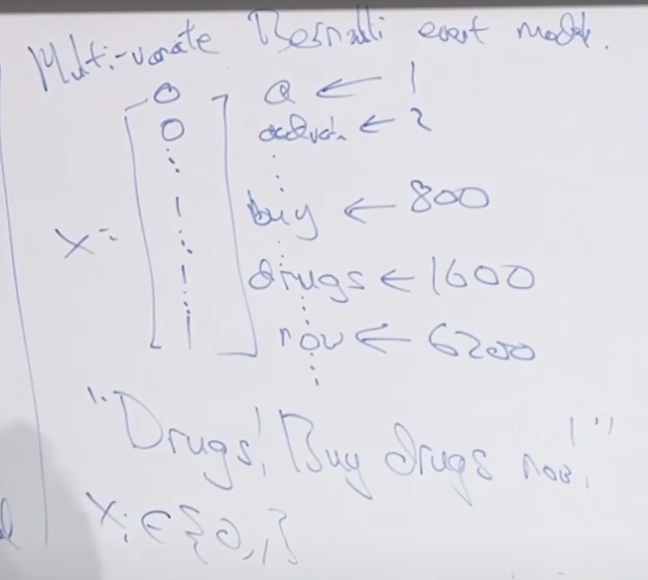 Multi-variate Bernoulli event model.
0 a ← 1
0 ← 2
⋮ ⋮
1 buy ← 800
x = ⋮ ⋮
1 drugs ← 1600
⋮ ⋮
1 now ← 6200
⋮
"Drugs! Buy drugs now!"
Xi ∈ {0,1}